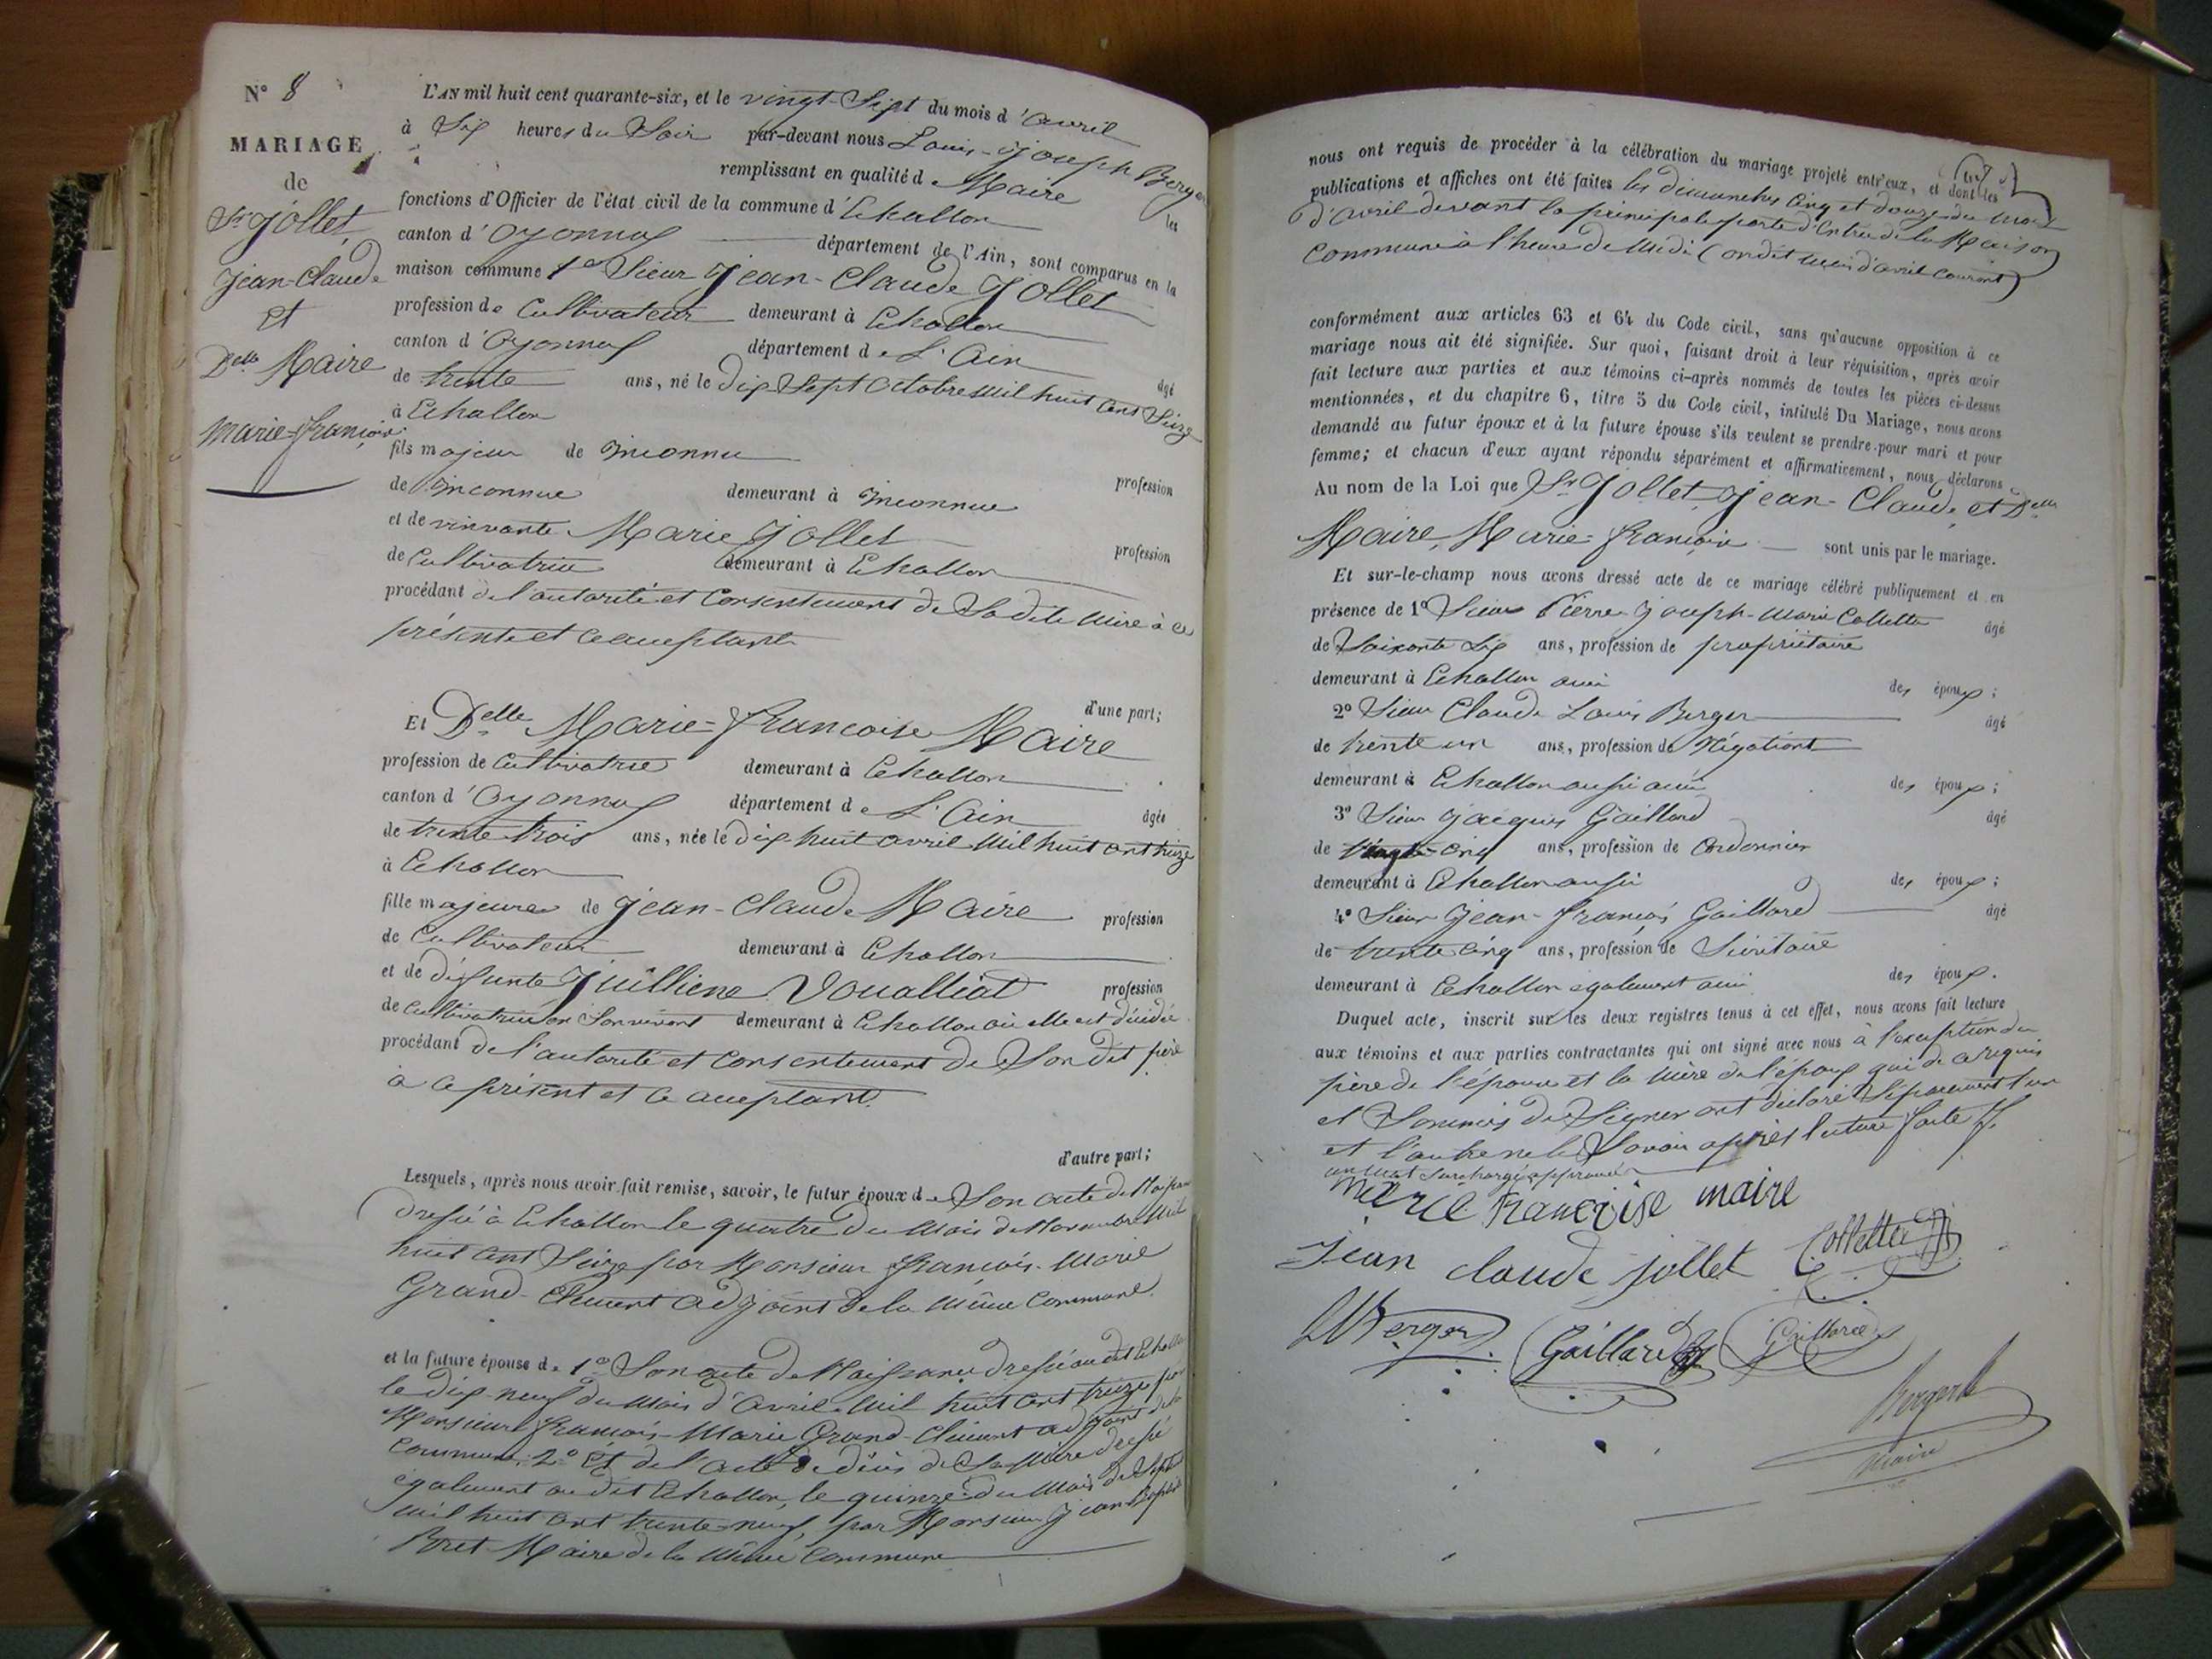 N° 8
MARIAGE
de
Sr Jollet,
Jean-Claude
et
Delle Maire
Marie-Françoise
L'AN mil huit cent quarante-six, et le vingt-Sept du mois d'avril
à Six heures du Soir par-devant nous Louis-Joseph Berger
remplissant en qualité de Maire les
fonctions d'Officier de l'état civil de la commune d'Echallon
canton d'Oyonnax département de l'Ain, sont comparus en la
maison commune 1° Sieur Jean-Claude Jollet
profession de Cultivateur demeurant à Echallon
canton d'Oyonnax département de L'Ain
âgé
de trente ans, né le dix Sept Octobre mil huit cent Seize
à Echallon
fils majeur de inconnu
profession
de inconnue demeurant à inconnue
et de vivante Marie Jollet
profession
de Cultivatrice demeurant à Echallon
procédant de l'autorité et Consentement de Sadite Mère à ce
présente et ce acceptante
d'une part;
Et Delle Marie-Françoise Maire
profession de Cultivatrice demeurant à Echallon
canton d'Oyonnax département de L'Ain
âgée
de trente trois ans, née le dix-huit avril Mil huit cent treize
à Echallon
fille majeure de Jean-Claude Maire profession
de Cultivateur demeurant à Echallon
et de défunte Juilliene Voualliat profession
de Cultivatrice en Son vivant demeurant à Echallon où elle est décédée
procédant de l'autorité et consentement de Son dit père
à ce présent et ce acceptant.
d'autre part;
Lesquels, après nous avoir fait remise, savoir, le futur époux de Son acte de Naissance
dressé à Echallon le quatre du Mois de Novembre Mil
huit cent Seize par Monsieur François-Marie
Grand-Clément adjoint de la Même Commune.
et la future épouse de 1° Son acte de Naissance dressé au dit Echallon
le dix-neuf du Mois d'Avril Mil huit cent treize par
Monsieur François-Marie Grand-Clément adjoint de la
Commune. 2° Et de l'acte de décès de Sa Mère dressé
également au dit Echallon, le quinze du Mois de Sept
mil huit cent trente-neuf, par Monsieur Jean-Baptiste
Bret Maire de la Même Commune
nous ont requis de procéder à la célébration du mariage projeté entr'eux, et dont les
publications et affiches ont été faites les dimanches Cinq et douze du mois
d'avril devant la principale porte d'Entrée de la Maison
Commune à l'heure de Midi (on dit mois d'avril Courant)
conformément aux articles 63 et 64 du Code civil, sans qu'aucune opposition à ce
mariage nous ait été signifiée. Sur quoi, faisant droit à leur réquisition, après avoir
fait lecture aux parties et aux témoins ci-après nommés de toutes les pièces ci-dessus
mentionnées, et du chapitre 6, titre 5 du Code civil, intitulé Du Mariage, nous avons
demandé au futur époux et à la future épouse s'ils veulent se prendre pour mari et pour
femme; et chacun d'eux ayant répondu séparément et affirmativement, nous déclarons
Au nom de la Loi que Sr Jollet, Jean-Claude, et Delle
Maire, Marie-Françoise sont unis par le mariage.
Et sur-le-champ nous avons dressé acte de ce mariage célébré publiquement et en
présence de 1° Sieur Pierre-Joseph-Marie Colletta âgé
de Soixante Six ans, profession de propriétaire
demeurant à Echallon ami des époux;
2° Sieur Claude Louis Berger âgé
de trente un ans, profession de Négotiant
demeurant à Echallon aussi ami des époux;
3° Sieur Jacques Gaillard âgé
de Vingt-Cinq ans, profession de Cordonnier
demeurant à Echallon aussi des époux;
4° Sieur Jean-François Gaillard âgé
de trente Cinq ans, profession de Sécrétaire
demeurant à Echallon également ami des époux.
Duquel acte, inscrit sur les deux registres tenus à cet effet, nous avons fait lecture
aux témoins et aux parties contractantes qui ont signé avec nous à l'exception du
père de l'épouse et la Mère de l'époux qui de ce requis
et Sommés de Signer ont déclaré Séparément l'un
et l'autre ne le Savoir après lecture faite
un mot Surchargé approuvé
Marie Françoise maire
Jean claude jollet Colletta
Berger Gaillard Gaillard
Berger
Maire